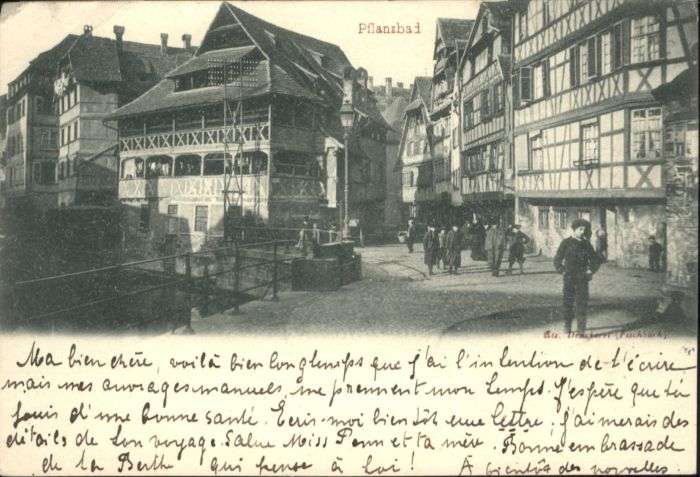 Pflanzbad
Els. Druckerei (Fischbach)
Ma bien chère, voilà bien longtemps que j'ai l'intention de t'écrire
mais mes ouvrages manuels, me prennent mon temps. J'espère que tu
jouis d'une bonne santé. Ecris-moi bientôt une lettre; j'aimerais des
détails de ton voyage. Salue Miss Penn et ta mère. Bonne embrassade
de la Berthe qui pense à toi! À bientôt des nouvelles.